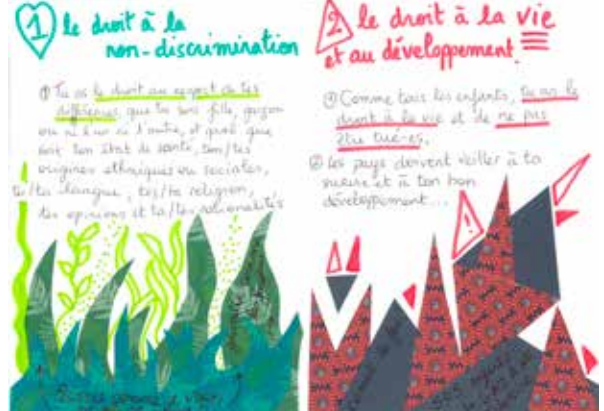 1 le droit à la
non-discrimination
① Tu as le droit au respect de tes
différences, que tu sois fille, garçon
ou ni l'un ni l'autre, et quel que
soit ton état de santé, ton/tes
origines ethniques ou sociales,
ta/ta langue, tes/ta religion,
tes opinions et ta/tes nationalités
2 le droit à la vie
et au développement
① Comme tous les enfants, tu as le
droit à la vie et de ne pas
être tué-es.
② les pays doivent veiller à ta
survie et à ton bon
développement...
!